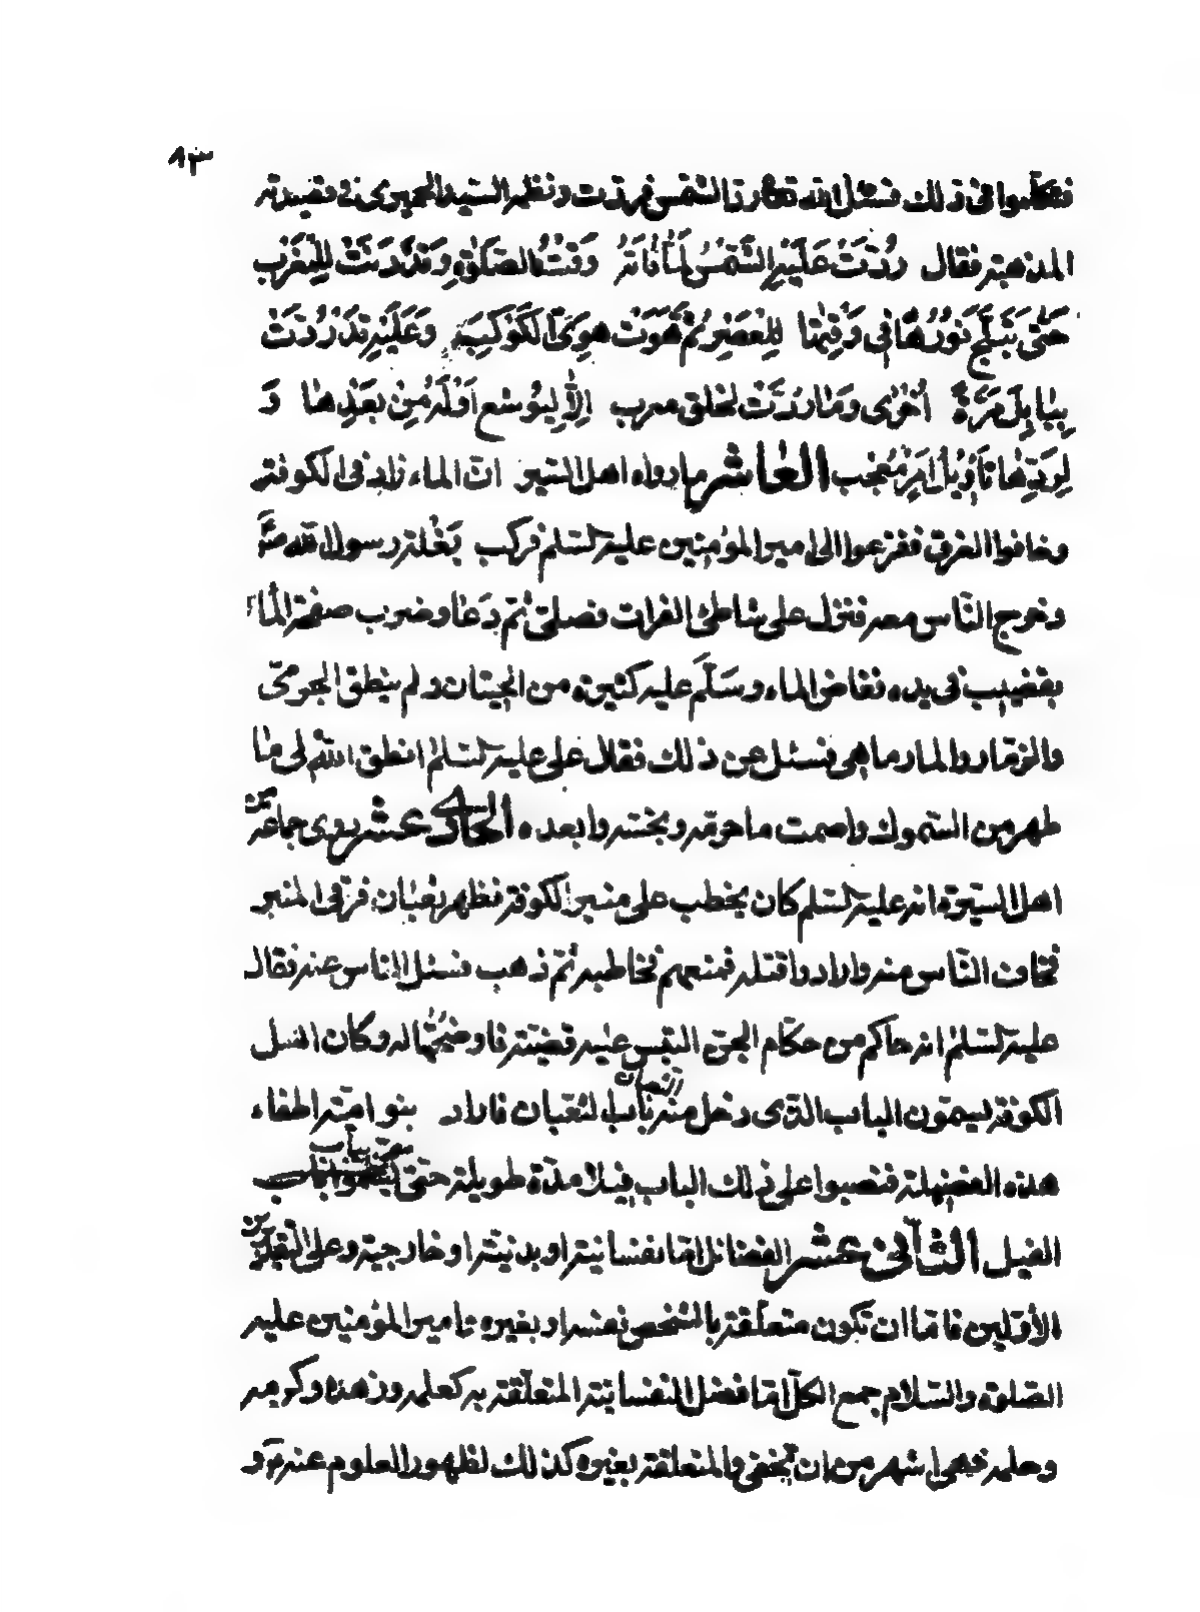 ٨٣
فتكلموا في ذلك فسئل الله تعالى رد الشمس فردت ونظمه السيد الحميري في قصيدته
المذهبة فقال رُدَّتْ عَلَيْهِ الشَّمْسُ لَمَّا فَاتَهُ وَقْتُ الصَّلوٰةِ وَقَدْ دَنَتْ لِلْمَغْرِبِ
حَتّٰى تَبَلَّجَ نُورُهَا فِي وَقْتِهَا لِلْعَصْرِ ثُمَّ هَوَتْ هَوِىَّ الْكَوْكَبِ وَعَلَيْهِ قَدْ رُدَّتْ
بِبَابِلَ مَرَّةً اُخْرٰى وَمَا رُدَّتْ لخلق معرب اِلَّا لِيُوشع اَوْلَهُ مِنْ بَعْدِهَا وَ
لِرَدِّهَا تَأْوِيلُ اَمْرٍ مُعْجِب العاشر ما رواه اهل السير ان الماء زاد في الكوفة
وخافوا الغرق ففزعوا الى امير المؤمنين عليه السلم فركب بَغْلة رسول الله ص
وخرج النّاس معه فنزل على شاطئ الفرات فصلى ثم دَعَا وضرب صفحة الماء
بقضيب في يده فغاض الماء وسَلَّمَ عليه كثير من الحيتان ولم ينطق الجري
والزمار والمارماهي فسئل عن ذلك فقال على عليه السلم انطق الله لى ما
طهر من السموك واصمت ما حرمه ونجسه وابعده الحادي عشر روى جماعة من
اهل السيرة انه عليه السلم كان يخطب على منبر الكوفة فظهر ثعبان فرقى المنبر
فخاف الناس منه وارادوا قتله فمنعهم فخاطبه ثم ذهب فسئل الناس عنه فقال
عليه السلم انه حاكم من حكام الجن التبس عليه قضيته فاوضحتها له وكان اهل
الكوفة يسمون الباب الذى دخل منه الثعبان باب الثعبان فاراد بنو امية اطفاء
هذه الفضيلة فنصبوا على ذلك الباب فيلا مدة طويلة حتى سمى بباب
الفيل الثاني عشر الفضائل اما نفسانية او بدنية او خارجية وعلى التقديرين
الاوّلين فاما ان تكون متعلّقة بالشخص نفسه او بغيره وامير المؤمنين عليه
الصلوة والسلام جمع الكلّ اما فضائل النفسانية المتعلّقة به كعلمه وزهده وكرمه
وحلمه فهى اشهر من ان تخفى والمتعلقة بغيره كذلك لظهور العلوم عنه و